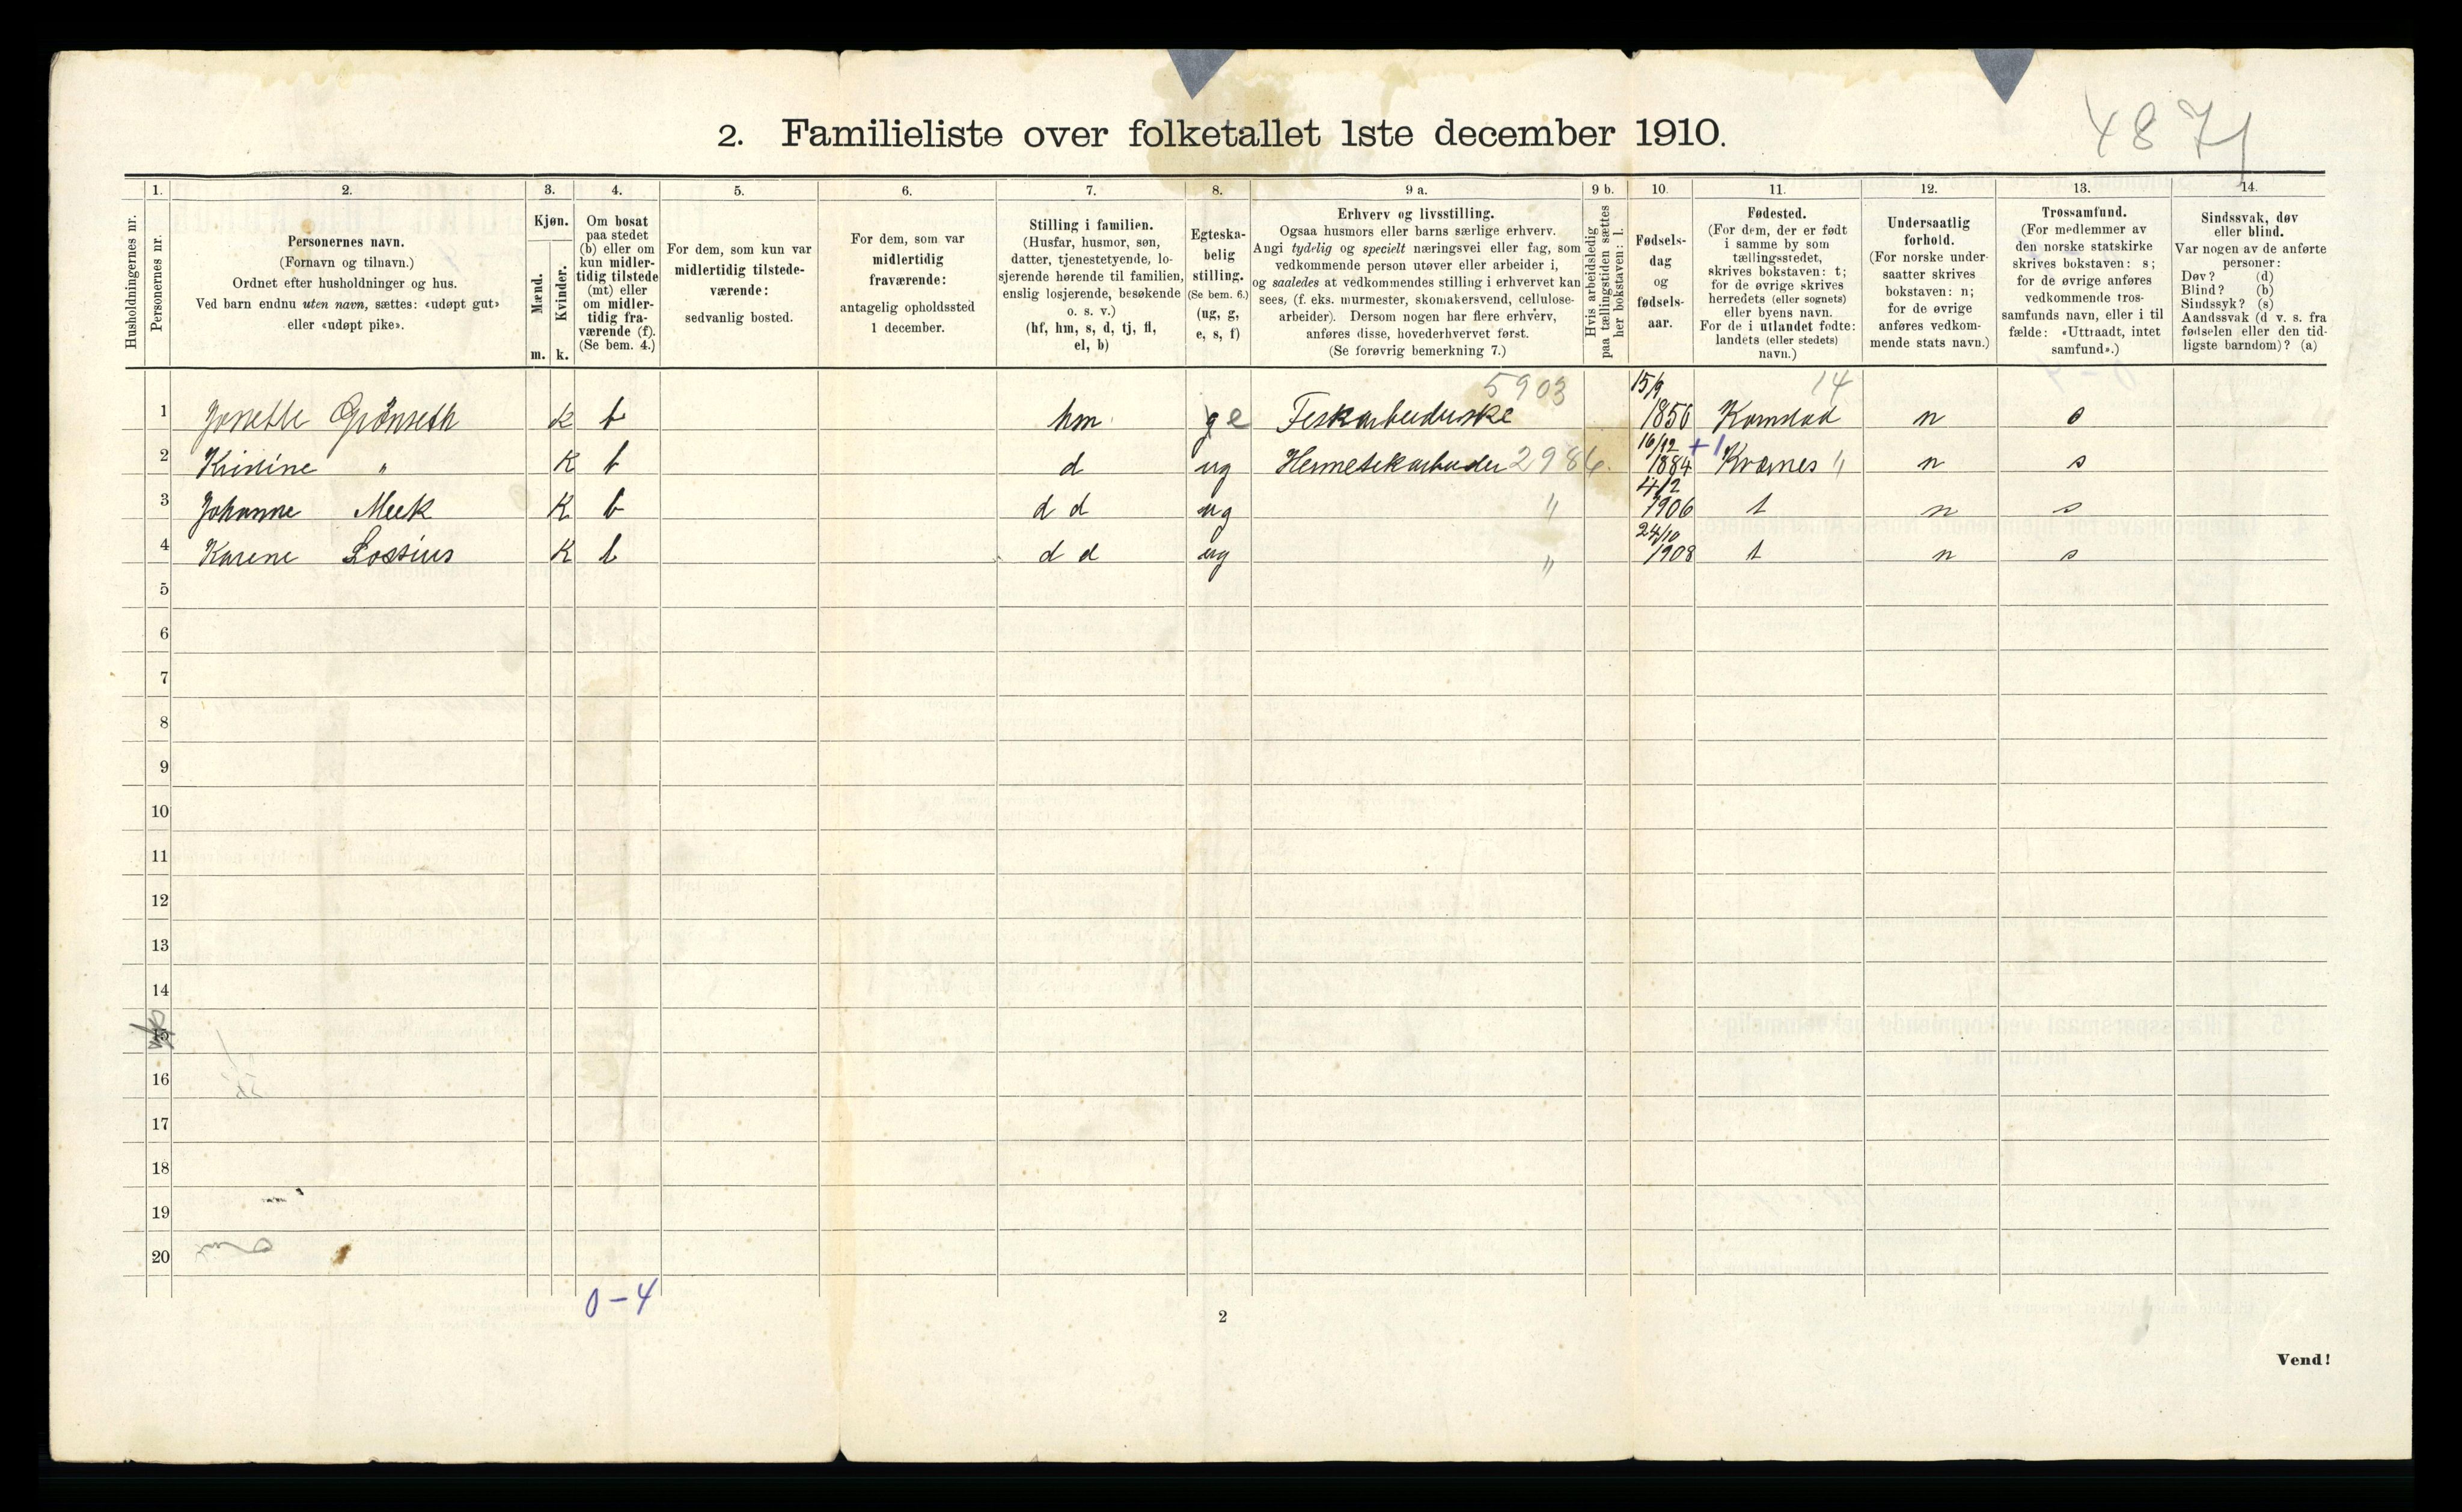 4871
2. Familieliste over folketallet 1ste december 1910.
Husholdningernes nr.
1.
Personernes nr.
2.
Personernes navn.
(Fornavn og tilnavn.)
Ordnet efter husholdninger og hus.
Ved barn endnu uten navn, sættes: «udøpt gut»
eller «udøpt pike».
3.
Kjøn.
Mænd.
Kvinder.
m. k.
4.
Om bosat
paa stedet
(b) eller om
kun midler-
tidig tilstede
(mt) eller
om midler-
tidig fra-
værende (f).
(Se bem. 4.)
5.
For dem, som kun var
midlertidig tilstede-
værende:
sedvanlig bosted.
6.
For dem, som var
midlertidig
fraværende:
antagelig opholdssted
1 december.
7.
Stilling i familien.
(Husfar, husmor, søn,
datter, tjenestetyende, lo-
sjerende hørende til familien,
enslig losjerende, besøkende
o. s. v.)
(hf, hm, s, d, tj, fl,
el, b)
8.
Egteska-
belig
stilling.
(Se bem. 6.)
(ug, g,
e, s, f)
9 a.
Erhverv og livsstilling.
Ogsaa husmors eller barns særlige erhverv.
Angi tydelig og specielt næringsvei eller fag, som
vedkommende person utøver eller arbeider i,
og saaledes at vedkommendes stilling i erhvervet kan
sees, (f. eks. murmester, skomakersvend, cellulose-
arbeider). Dersom nogen har flere erhverv,
anføres disse, hovederhvervet først.
(Se forøvrig bemerkning 7.)
9 b.
Hvis arbeidsledig
paa tællingstiden sættes
her bokstaven: l.
10.
Fødsels-
dag
og
fødsels-
aar.
11.
Fødested.
(For dem, der er født
i samme by som
tællingsstedet,
skrives bokstaven: t;
for de øvrige skrives
herredets (eller sognets)
eller byens navn.
For de i utlandet fødte:
landets (eller stedets)
navn.)
12.
Undersaatlig
forhold.
(For norske under-
saatter skrives
bokstaven: n;
for de øvrige
anføres vedkom-
mende stats navn.)
13.
Trossamfund.
(For medlemmer av
den norske statskirke
skrives bokstaven: s;
for de øvrige anføres
vedkommende tros-
samfunds navn, eller i til
fælde: «Uttraadt, intet
samfund».)
14.
Sindssvak, døv
eller blind.
Var nogen av de anførte
personer:
Døv? (d)
Blind? (b)
Sindssyk? (s)
Aandssvak (d v. s. fra
fødselen eller den tid-
ligste barndom)? (a)
5903 15/9 14
1 Grönseth k b hm g e 1850 n s
16/12 +1
2 Kristine " K b d ug 2986. 1884 Kværnes " n s
4/2
3 Johanne Meek K b d d ug " 1906 t n s
24/10
4 Karene Lossius K b d d ug " 1908 t n s
5
6
7
8
9
10
11
12
13
14
15
16
17
18
19
20
0-4
2
Vend!